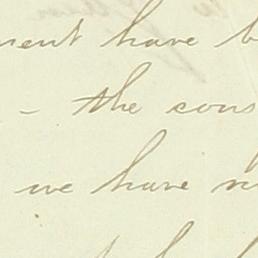 ment have b
- the cons
we have n